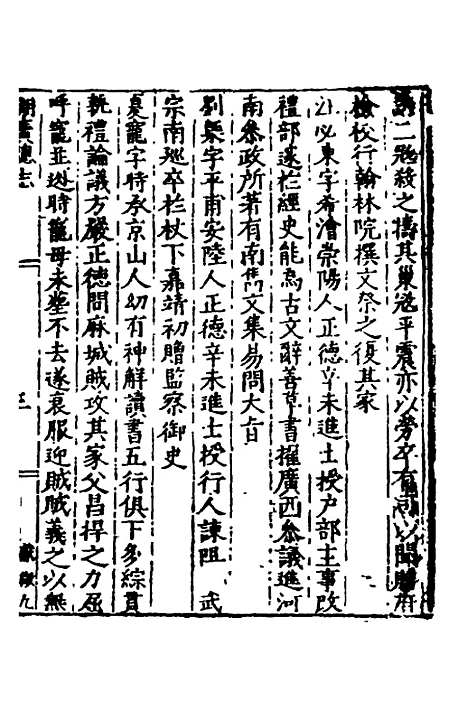 誘二兇殺之擣其巢冦平震亦以勞卒有司以聞贈府
檢校行翰林院撰文祭之復其家
汪必東字希澮崇陽人正德辛未進士授户部主事改
禮部遂於經史能爲古文辭善草書擢廣西叅議進河
南叅政所著有南雋文集易問大旨
劉槩字平甫安陸人正德辛未進士授行人諫阻 武
宗南巡卒於杖下嘉靖初贈監察御史
吏寵字時承京山人幼有神解讀書五行俱下多綜貫
執禮論議方嚴正德間麻城賊攻其家父昌捍之力屈
呼寵並逃時寵母未塟不去遂衰服迎賊賊義之以無
湖廣總志
獻徵九